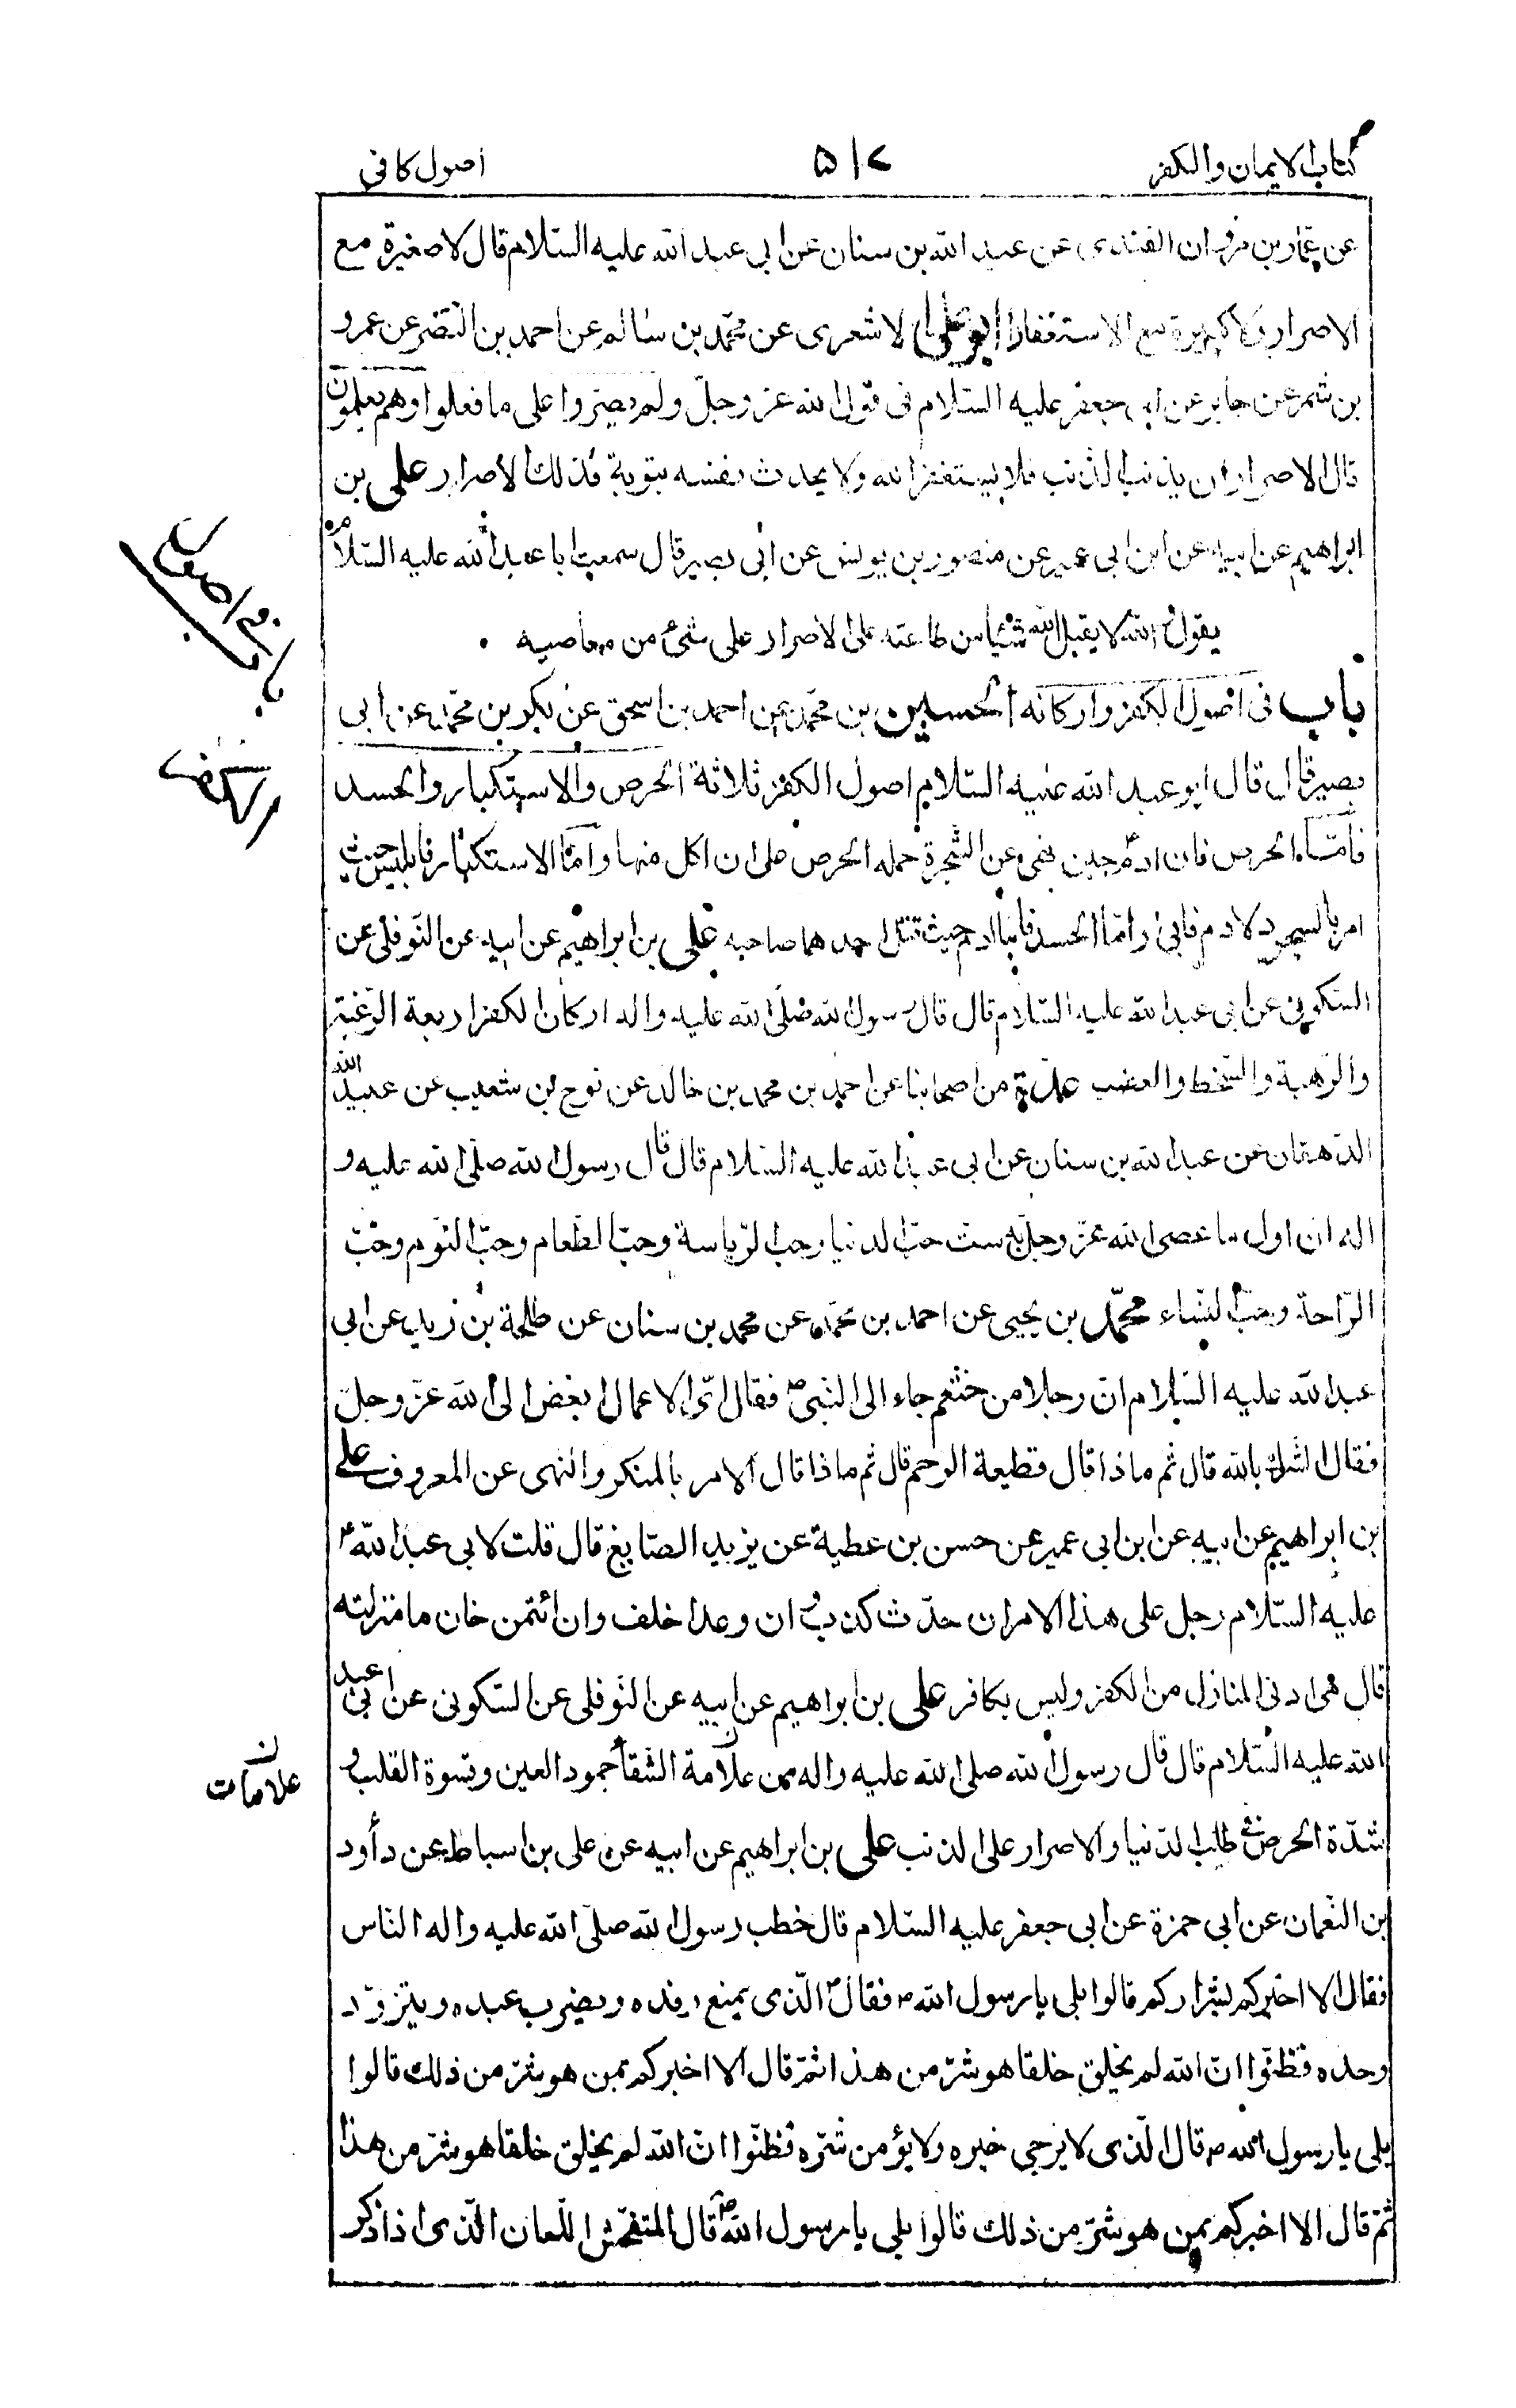 كتاب الايمان والكفر
۵۱۲
اصول كافى
عن عمار بن مروان القندى عن عبد الله بن سنان عن ابى عبد الله عليه السّلام قال لا صغيرة مع
الاصرار ولا كبيرة مع الاستغفار ابو على الاشعرى عن محمّد بن سالم عن احمد بن النّضر عن عمرو
بن شمر عن جابر عن ابى جعفر عليه السّلام فى قول الله عز وجلّ ولم يصرّوا على ما فعلوا وهم يعلمون
قال الاصرار ان يذنب الذنب فلا يستغفر الله ولا يحدث نفسه بتوبة فذلك الاصرار على بن
ابراهيم عن ابيه عن ابن ابى عمير عن منصور بن يونس عن ابى بصير قال سمعت ابا عبد الله عليه السّلام
يقول لا والله لا يقبل الله شيئا من طاعته على الاصرار على شئ من معاصيه
باب فى اصول الكفر واركانه الحسين بن محمّد عن احمد بن اسحق عن بكر بن محمّد عن ابى
بصير قال قال ابو عبد الله عليه السّلام اصول الكفر ثلاثة الحرص والاستكبار والحسد
فامّا الحرص فان ادم حين نهى عن الشّجرة حمله الحرص على ان اكل منها وامّا الاستكبار فابليس حيث
امر بالسجود لادم فابى وامّا الحسد فابنا ادم حيث قتل احدهما صاحبه على بن ابراهيم عن ابيه عن النّوفلى عن
السّكونى عن ابى عبد الله عليه السّلام قال قال رسول الله صلّى الله عليه واله اركان الكفر اربعة الرّغبة
والرّهبة والسّخط والغضب عدّة من اصحابنا عن احمد بن محمد بن خالد عن نوح بن شعيب عن عبيد الله
الدّهقان عن عبد الله بن سنان عن ابى عبد الله عليه السّلام قال قال رسول الله صلّى الله عليه و
اله ان اول ما عصى الله عزّ وجلّ به ست حبّ الدنيا وحب الرّياسة وحبّ الطّعام وحبّ النّوم وحبّ
الرّاحة وحبّ النّساء محمّد بن يحيى عن احمد بن محمّد عن محمد بن سنان عن طلحة بن زيد عن ابى
عبد الله عليه السّلام انّ رجلا من خثعم جاء الى النّبىّ ص فقال اىّ الاعمال ابغض الى الله عزّ وجلّ
فقال الشرك بالله قال ثم ماذا قال قطيعة الرحم قال ثم ماذا قال الامر بالمنكر والنهى عن المعروف على
بن ابراهيم عن ابيه عن ابن ابى عمير عن حسن بن عطية عن يزيد الصّايغ قال قلت لابى عبد الله ع
عليه السّلام رجل على هذا الامر ان حدّث كذب و ان وعد اخلف وان ائتمن خان ما منزلته
قال هى ادنى المنازل من الكفر وليس بكافر على بن ابراهيم عن ابيه عن النّوفلى عن السّكونى عن ابى عبد
الله عليه السّلام قال قال رسول الله صلى الله عليه واله من علامة الشّقاء جمود العين وقسوة القلب و
شدّة الحرص فى طلب الدّنيا والاصرار على الذنب على بن ابراهيم عن ابيه عن على بن اسباط عن داود
بن النّعمان عن ابى حمزة عن ابى جعفر عليه السّلام قال خطب رسول الله صلّى الله عليه واله النّاس
فقال الا اخبركم بشراركم قالوا بلى يا رسول الله ص فقال الّذى يمنع رفده ويضرب عبده ويتزوّد
وحده فظنّوا انّ الله لم يخلق خلقا هو شرّ من هذا ثمّ قال الا اخبركم بمن هو شرّ من ذلك قالوا
بلى يا رسول الله ص قال الّذى لا يرجى خيره ولا يؤمن شرّه فظنّوا انّ الله لم يخلق خلقا هو شرّ من هذا
ثمّ قال الا اخبركم بمن هو شرّ من ذلك قالوا بلى يا رسول الله ص قال المتفحّش اللّعان الّذى اذا ذكر
باب فى اصول
الكفر
علامات ن